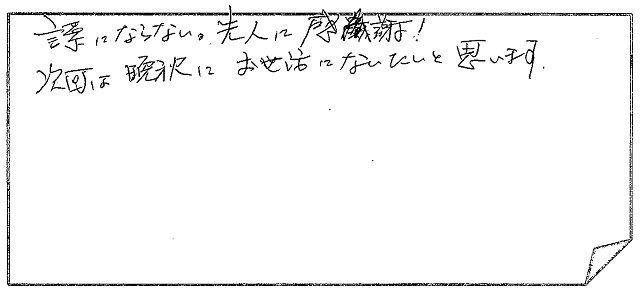 言葉にならない。先人に感謝!
次回は晩秋にお世話になりたいと思います.